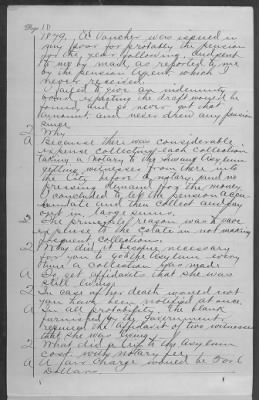 Page 10
1879, A Voucher were issued in
my favor for probably the pension
for the year following, and sent
to me by mail, as reported to me
by the pension agent, which I
never received.
I failed to give an indemnity
bond, expecting the draft would be
found, and so never got that
amount, and never drew any pension
since.
Q Why
A Because there was considerable
expense collecting each collection
taking a notary to the Insane Asylum
getting witnesses from there into
the City before a notary, and no
pressing demand for the money.
I concluded to let the pension accu-
mulate and then collect and pay
out in large sums.
The principle reason was to save
expense to the Estate in not making
frequent collections.
Q Why did it become necessary
for you to go to the Asylum every
time a collection was made
A To get affidavits that she was
still living.
Q In case of her death would not
you have been notified at once.
A In all probability. The blank
furnished by the Government,
required the affidavit of two witnesses
that she was living.
Q What did a trip to the Asylum
cost with notary fee
A A fair charge would be Four
Dollars.